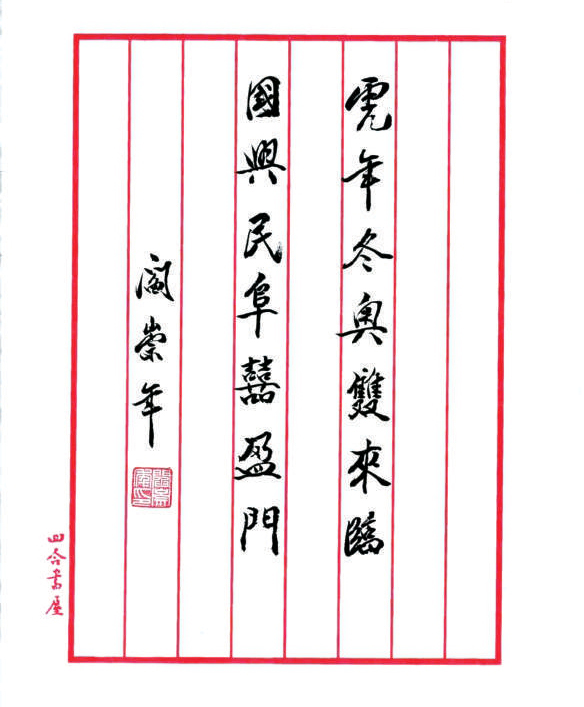 虎年冬奧雙來臨
國興民阜囍盈門
閻崇年
閻崇年印
四合書屋